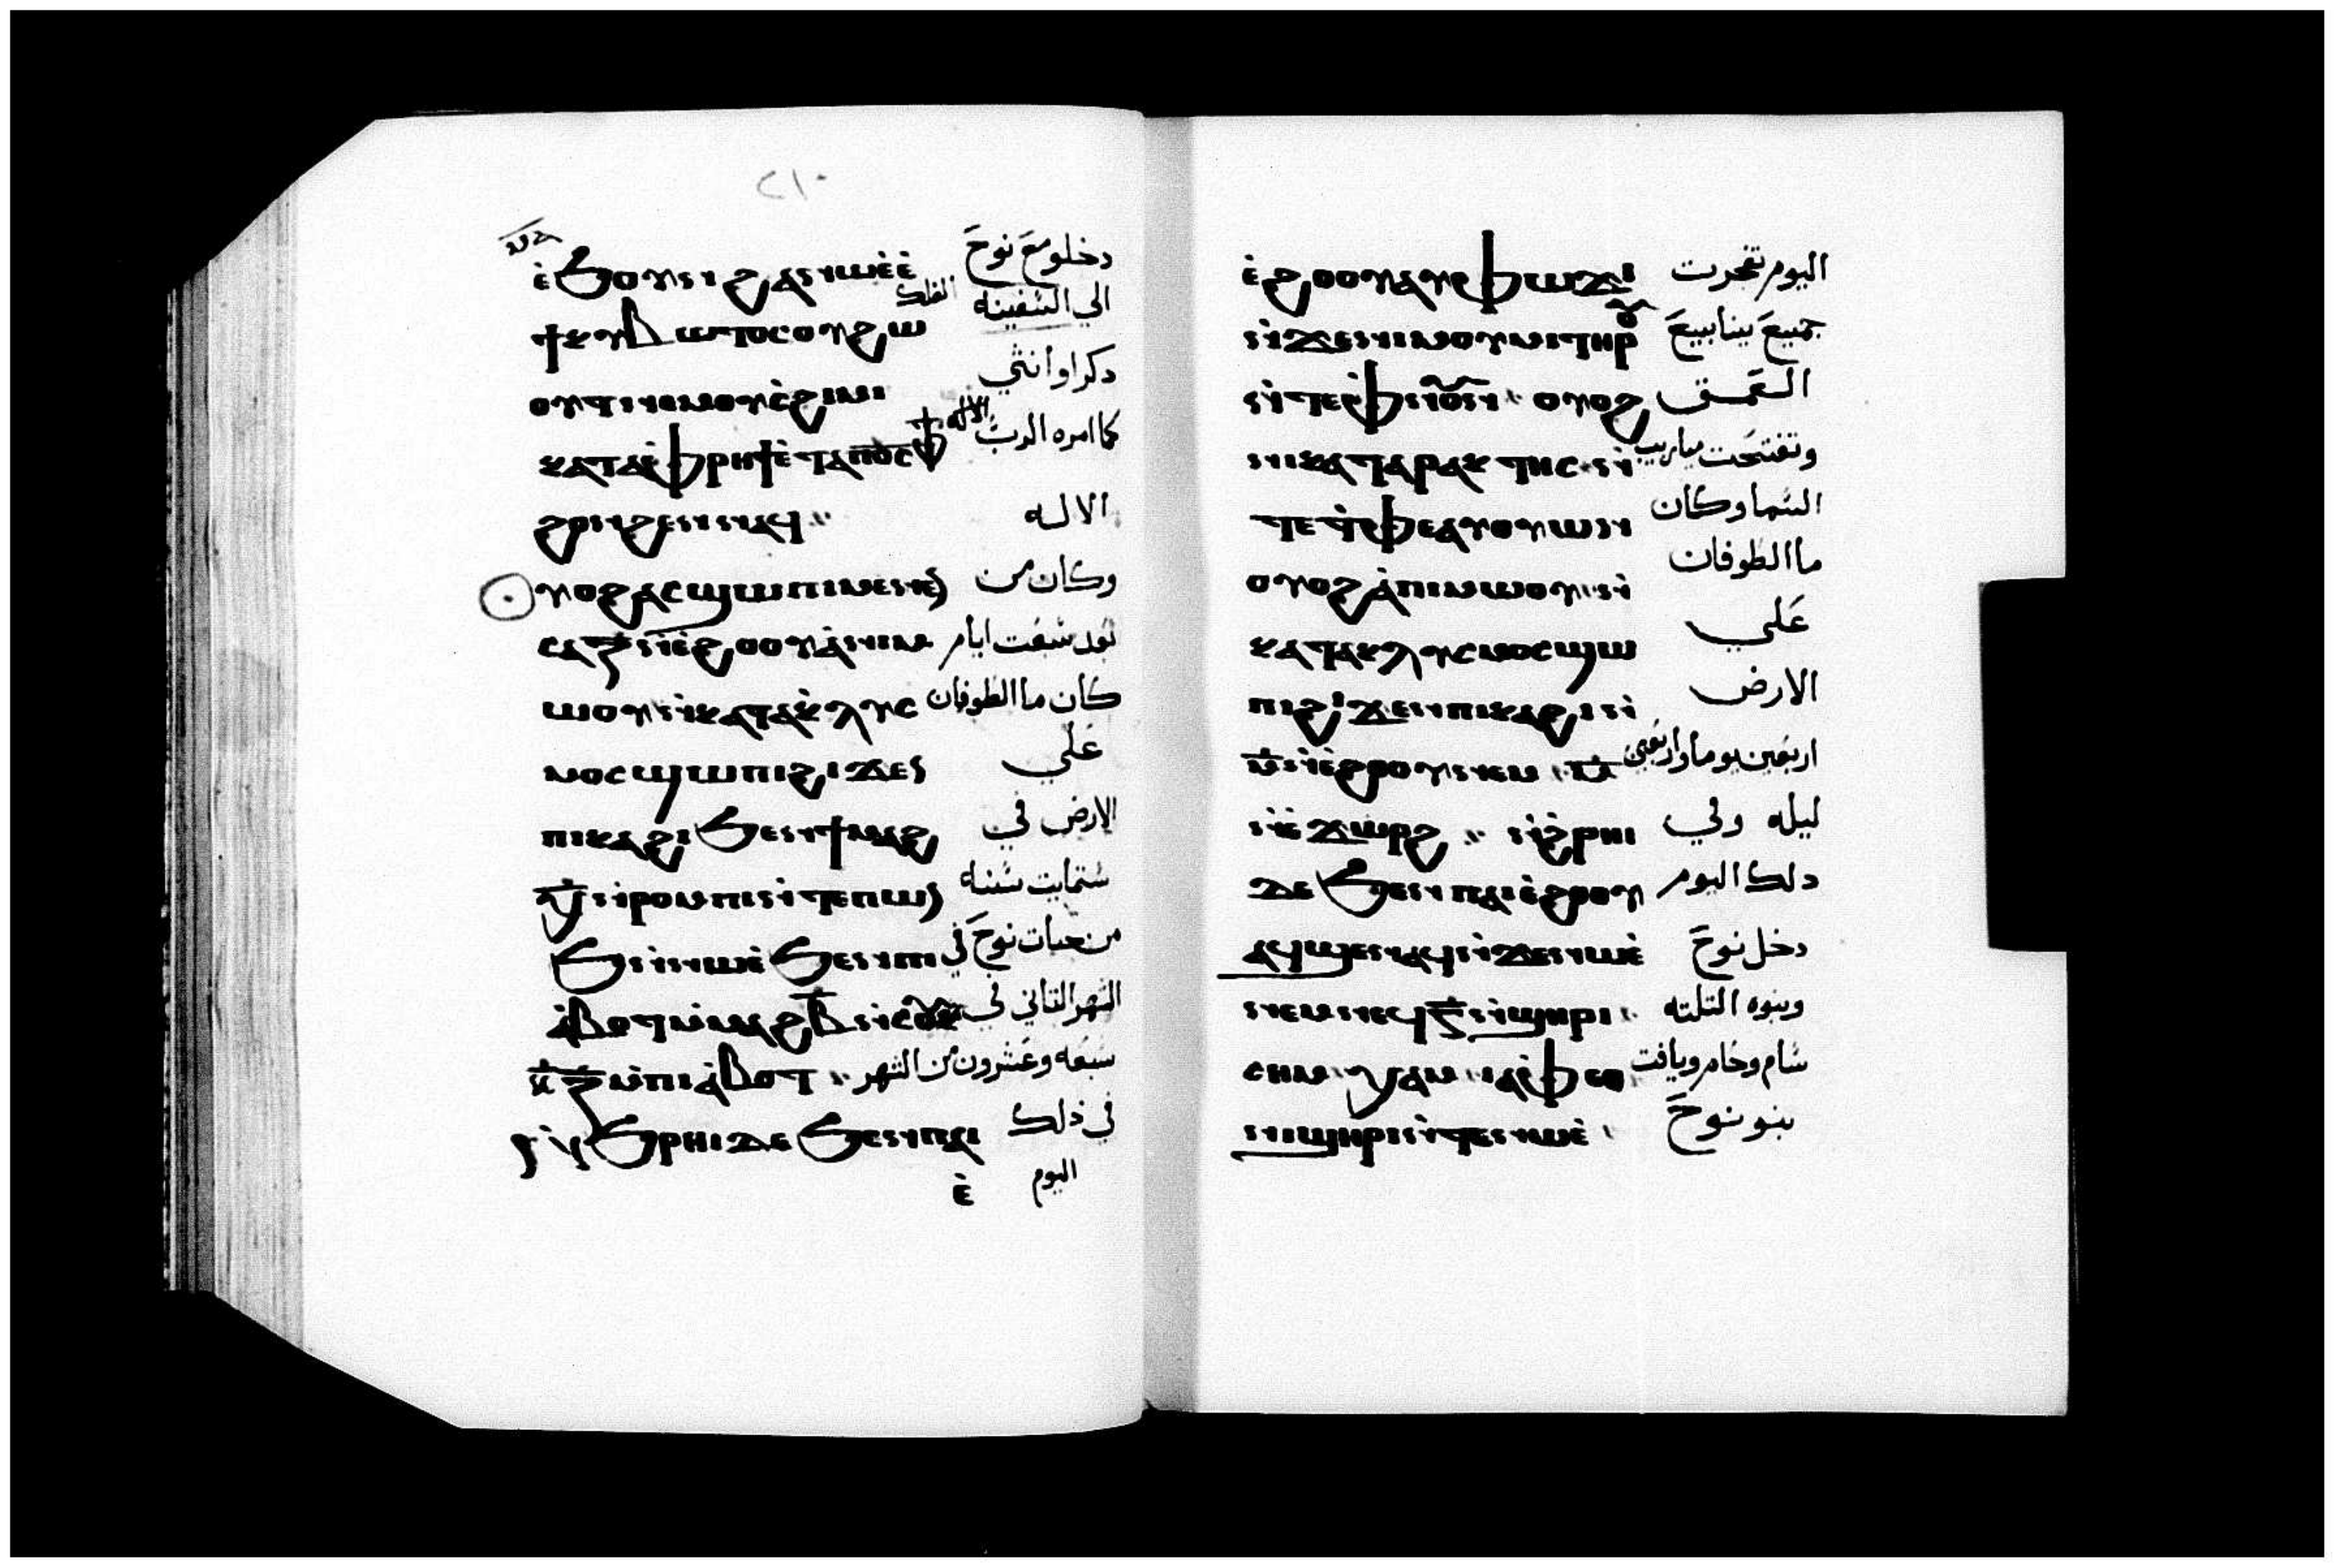 ٢١٠
ⲉ̀ϧⲟⲩⲛ ϩⲁ ⲛⲱⲉ̀ ⲉ̀ دخلو مع نوح
ϯⲕⲩⲃⲱⲧⲟⲥ ⲟⲩϩⲱ الي السفينه الفلك
ⲟⲩⲧ ⲛⲉⲙ ⲟⲩⲥ̀ϩⲓⲙⲓ دكرا وأنثي
ⲕⲁⲧⲁ ⲫ̀ⲣⲏϯ ⲉ̀ⲧⲁ ⲡⲟ̅ⲥ̅ ⲫϯ كما امره الرب الاله
ϩⲟⲛϩⲉⲛ ⲛⲁϥ ⳿⳿ الاله
ⲟⲩⲟϩ ⲁⲥϣⲱⲡⲓ ⲙⲉⲛⲉⲛ وكان من
ⲥⲁ ⲍ̅ ⲛ̀ⲉ̀ϩⲟⲟⲩ ⲁ̀ⲡⲓⲙ بعد سبعت ايام
ⲱⲟⲩ ⲛ̀ⲕⲁⲧⲁⲕ̀ⲗⲩⲥ كان ما الطوفان
ⲙⲟⲥ ϣⲱⲡⲓ ϩⲓϫⲉⲛ علي
ⲡⲓⲕⲁϩⲓ ϧⲉⲛ ϯⲙⲁϩ الارض في
ⲭ̅ ⲛ̀ⲣⲟⲙⲡⲓ ⲛ̀ⲧⲉ ⲡⲱⲛ ستمايت سنه
ϧ ⲛ̀ⲛⲱⲉ̀ ϧⲉⲛ ⲡⲓ من حيات نوح في
ⲁ̀ⲃⲟⲧ ⲙ̀ⲙⲁϩ ⲃ̅ ⲛ̀ⲥⲟⲩ الشهر التاني في
ⲕ̅ⲍ̅ ⲙ̀ⲡⲓⲁ̀ⲃⲟⲧ ⳿⳿ سبعه وعشرون من الشهر
ⲛ̀ϧⲣⲏⲓ ⲇⲉ ϧⲉⲛ ⲡⲁⲓ في ذلك
ⲉ̀ اليوم
ⲉ̀ϩⲟⲟⲩ ⲁⲩⲫⲱϫⲓ اليوم تفجرت
ⲛ̀ϫⲉ ⲛⲓⲙⲟⲩⲙⲓ ⲧⲏⲣⲟⲩ جميع ينابيع
ⲛ̀ⲧⲉ ⲫ̀ⲛⲟⲩⲛ ⳿ ⲟⲩⲟϩ العمق
ⲛⲓⲕⲁⲧⲁⲣⲁⲕⲧⲏⲥ ⲛ̀ وتفتحت ميازيب
ⲧⲉ ⲧ̀ⲫⲉ ⲁⲩⲟⲩⲱⲛ السما وكان
ⲟⲩⲟϩ ⲁ̀ⲡⲓⲙⲱⲟⲩ ⲛ̀ ما الطوفان
ⲕⲁⲧⲁⲕⲗⲩⲥⲙⲟⲥ ϣⲱ علي
ⲡⲓ ϩⲓϫⲉⲛ ⲡⲓⲕⲁϩⲓ ⲛ̀ الارض
ⲙ̅ ⲛ̀ⲉ̀ϩⲟⲟⲩ ⲛⲉⲙ ⲙ̅ اربعين يوما واربعين
ⲛ̀ⲉ̀ϫⲱⲣϩ ⳿⳿ ⲛ̀ϧ̀ⲣⲏⲓ ليله وفي
ⲇⲉ ϧⲉⲛ ⲡⲁⲓⲉ̀ϩⲟⲟⲩ دلك اليوم
ⲁϥϣⲉⲛⲁϥ ⲛ̀ϫⲉ ⲛⲱⲉ̀ دخل نوح
ⲛⲉⲙ ⲛⲉϥ ⲅ̅ ⲛ̀ϣⲏⲣⲓ وبنوه التلته
ⲥⲏⲙ ⳿ ⲭⲁⲙ ⳿ ⲓⲁⲫ̀ⲉⲑ سام وحام ويافت
ⲛⲓϣⲏⲣⲓ ⲛ̀ⲧⲉ ⲛⲱⲉ̀ بنو نوح